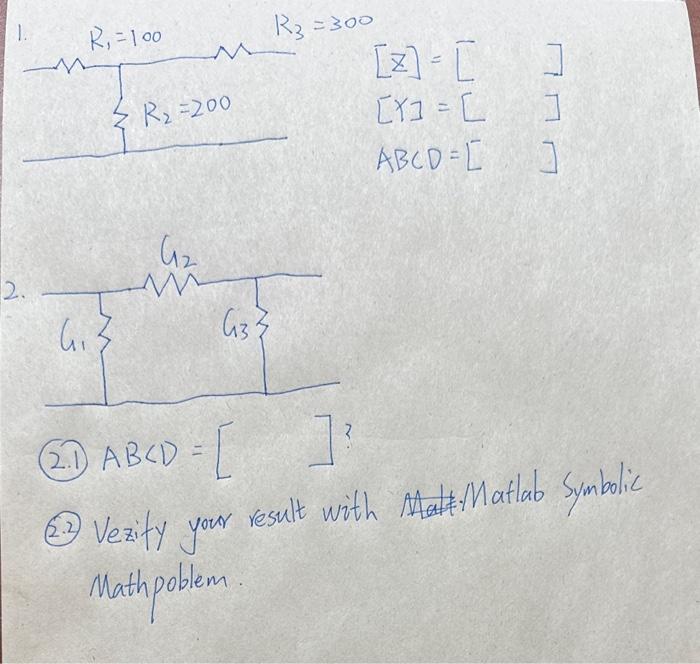 1. R₁=100 R₃=300
R₂=200
[Z] = [ ]
[Y] = [ ]
ABCD = [ ]
2. G₂
G₁ G₃
2.1 ABCD = [ ]?
2.2 Vezify your result with Matlab Symbolic
Mathpoblem.